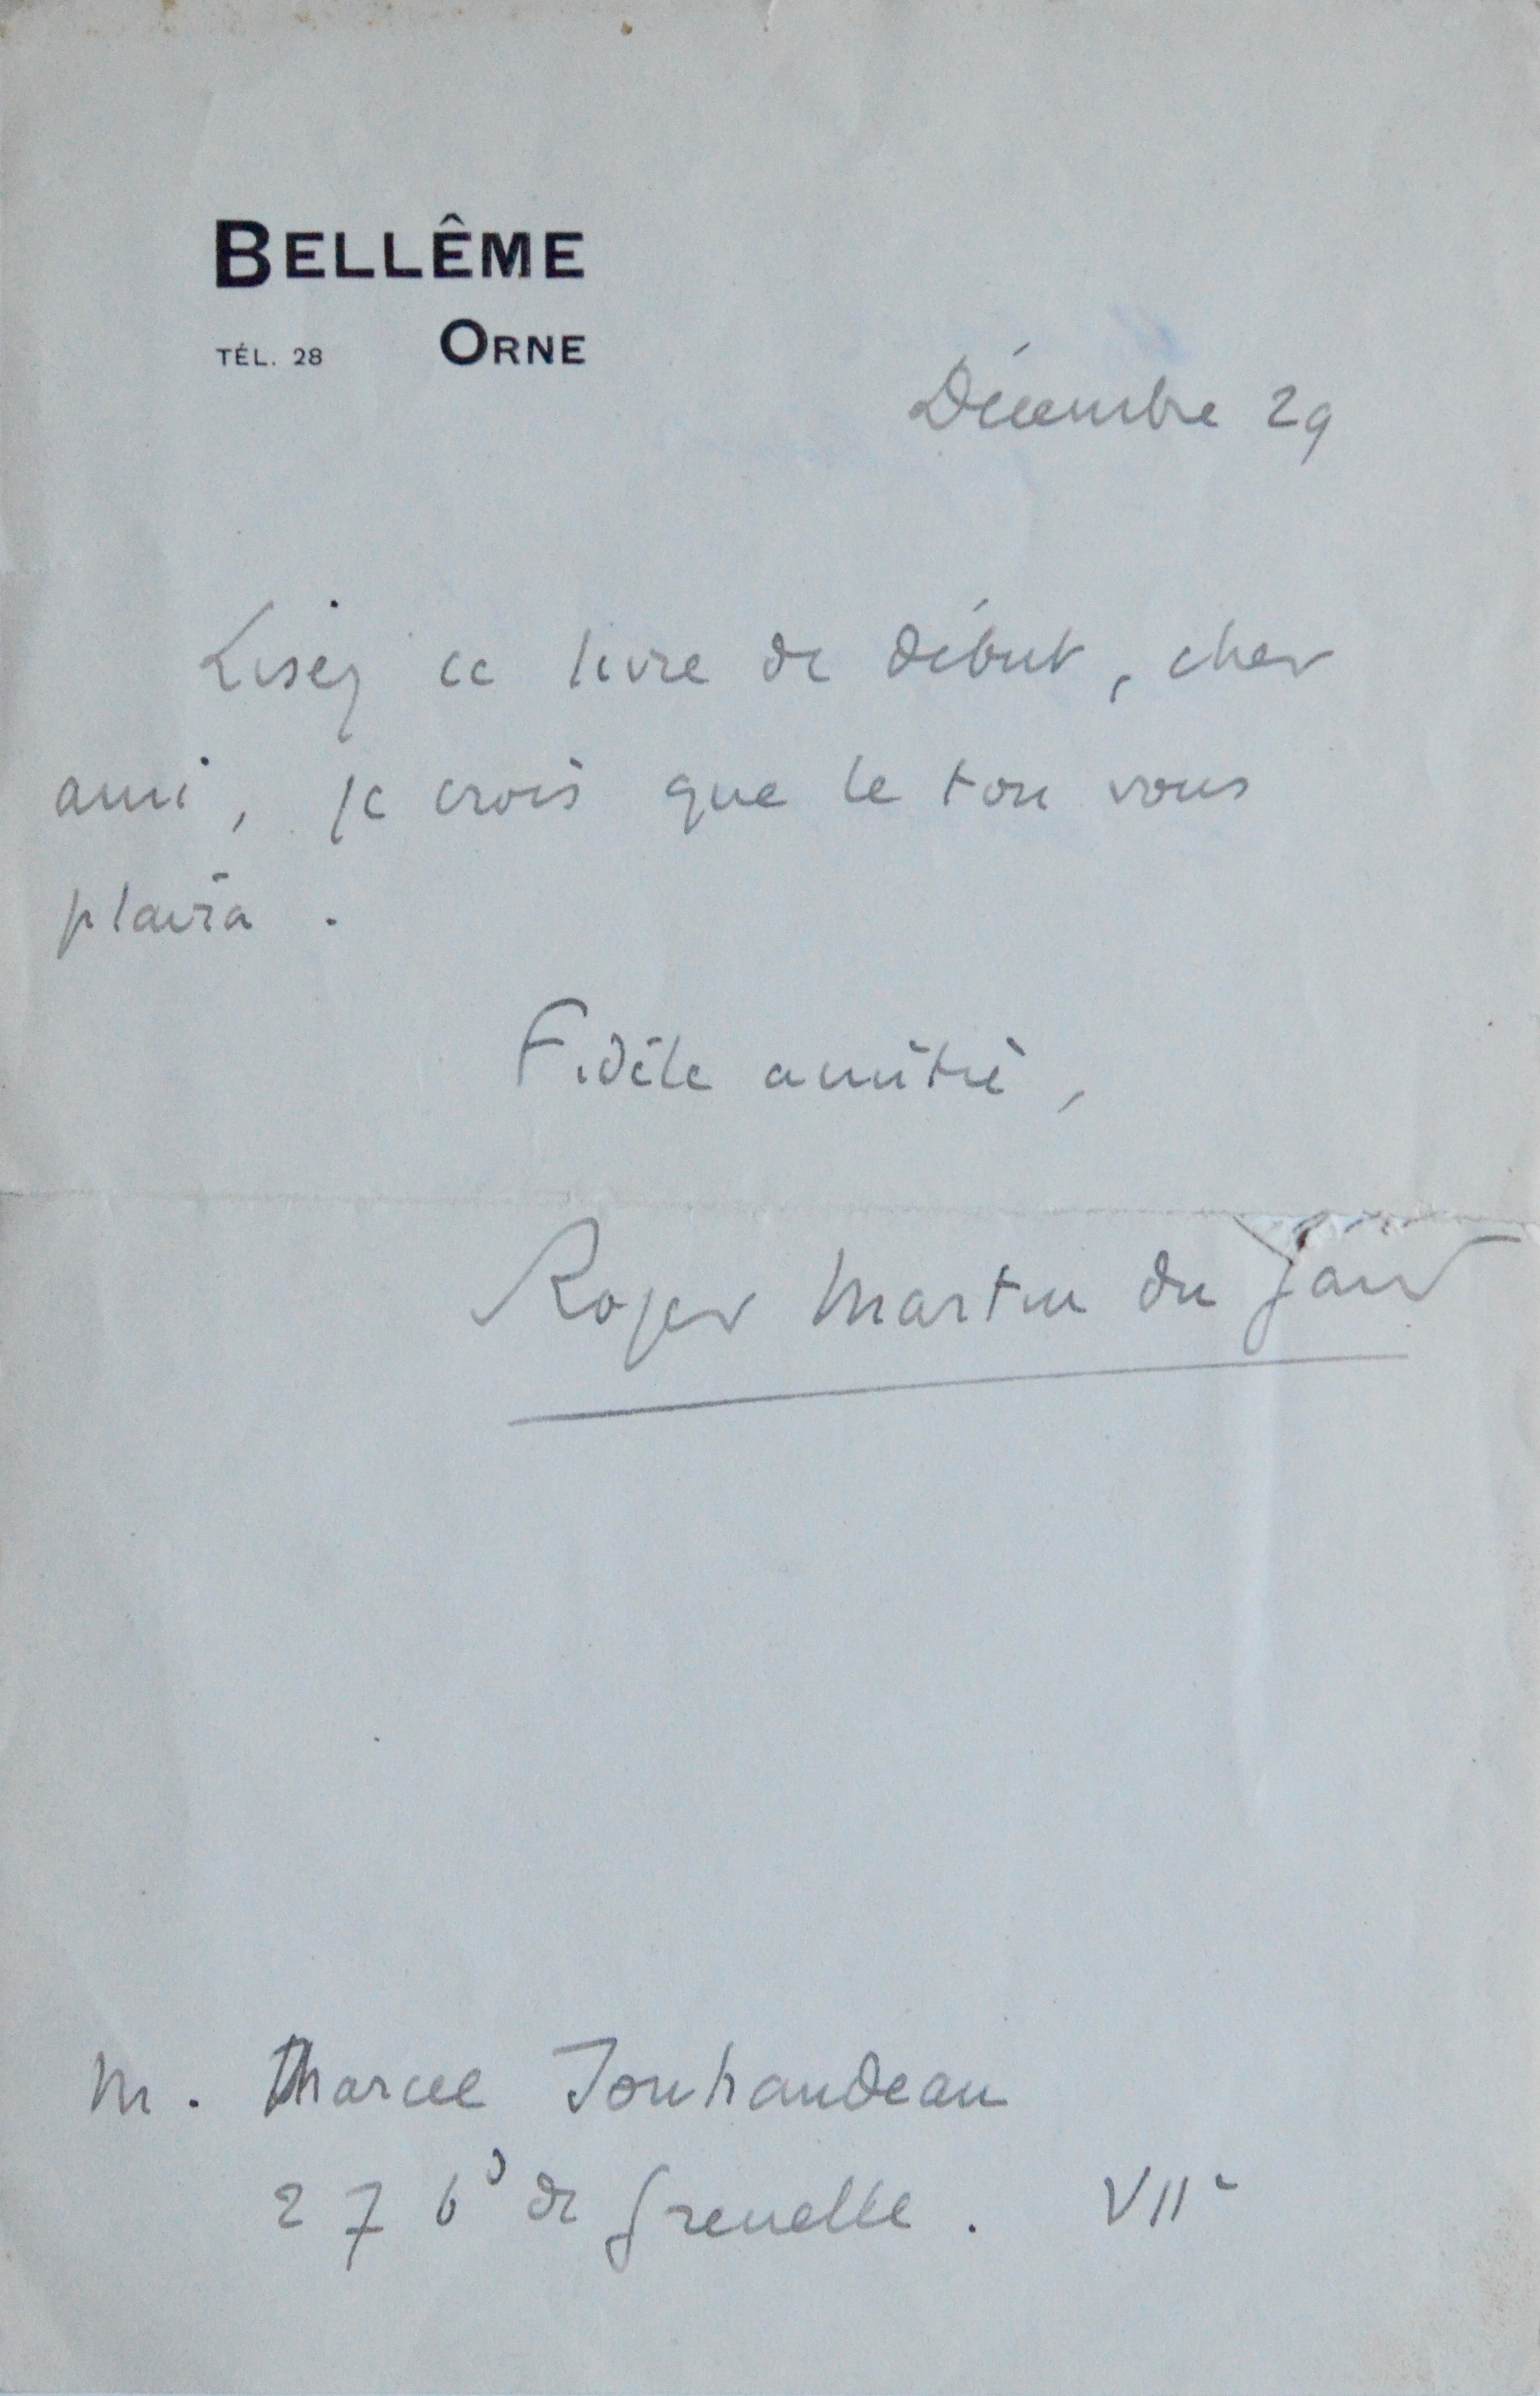 BELLÊME
TÉL. 28 ORNE
Décembre 29
Lisez ce livre de début, cher
ami, je crois que le ton vous
plaira.
Fidèle amitié,
Roger Martin du Gard
M. Marcel Jouhandeau
27 bd de Grenelle. VIIe